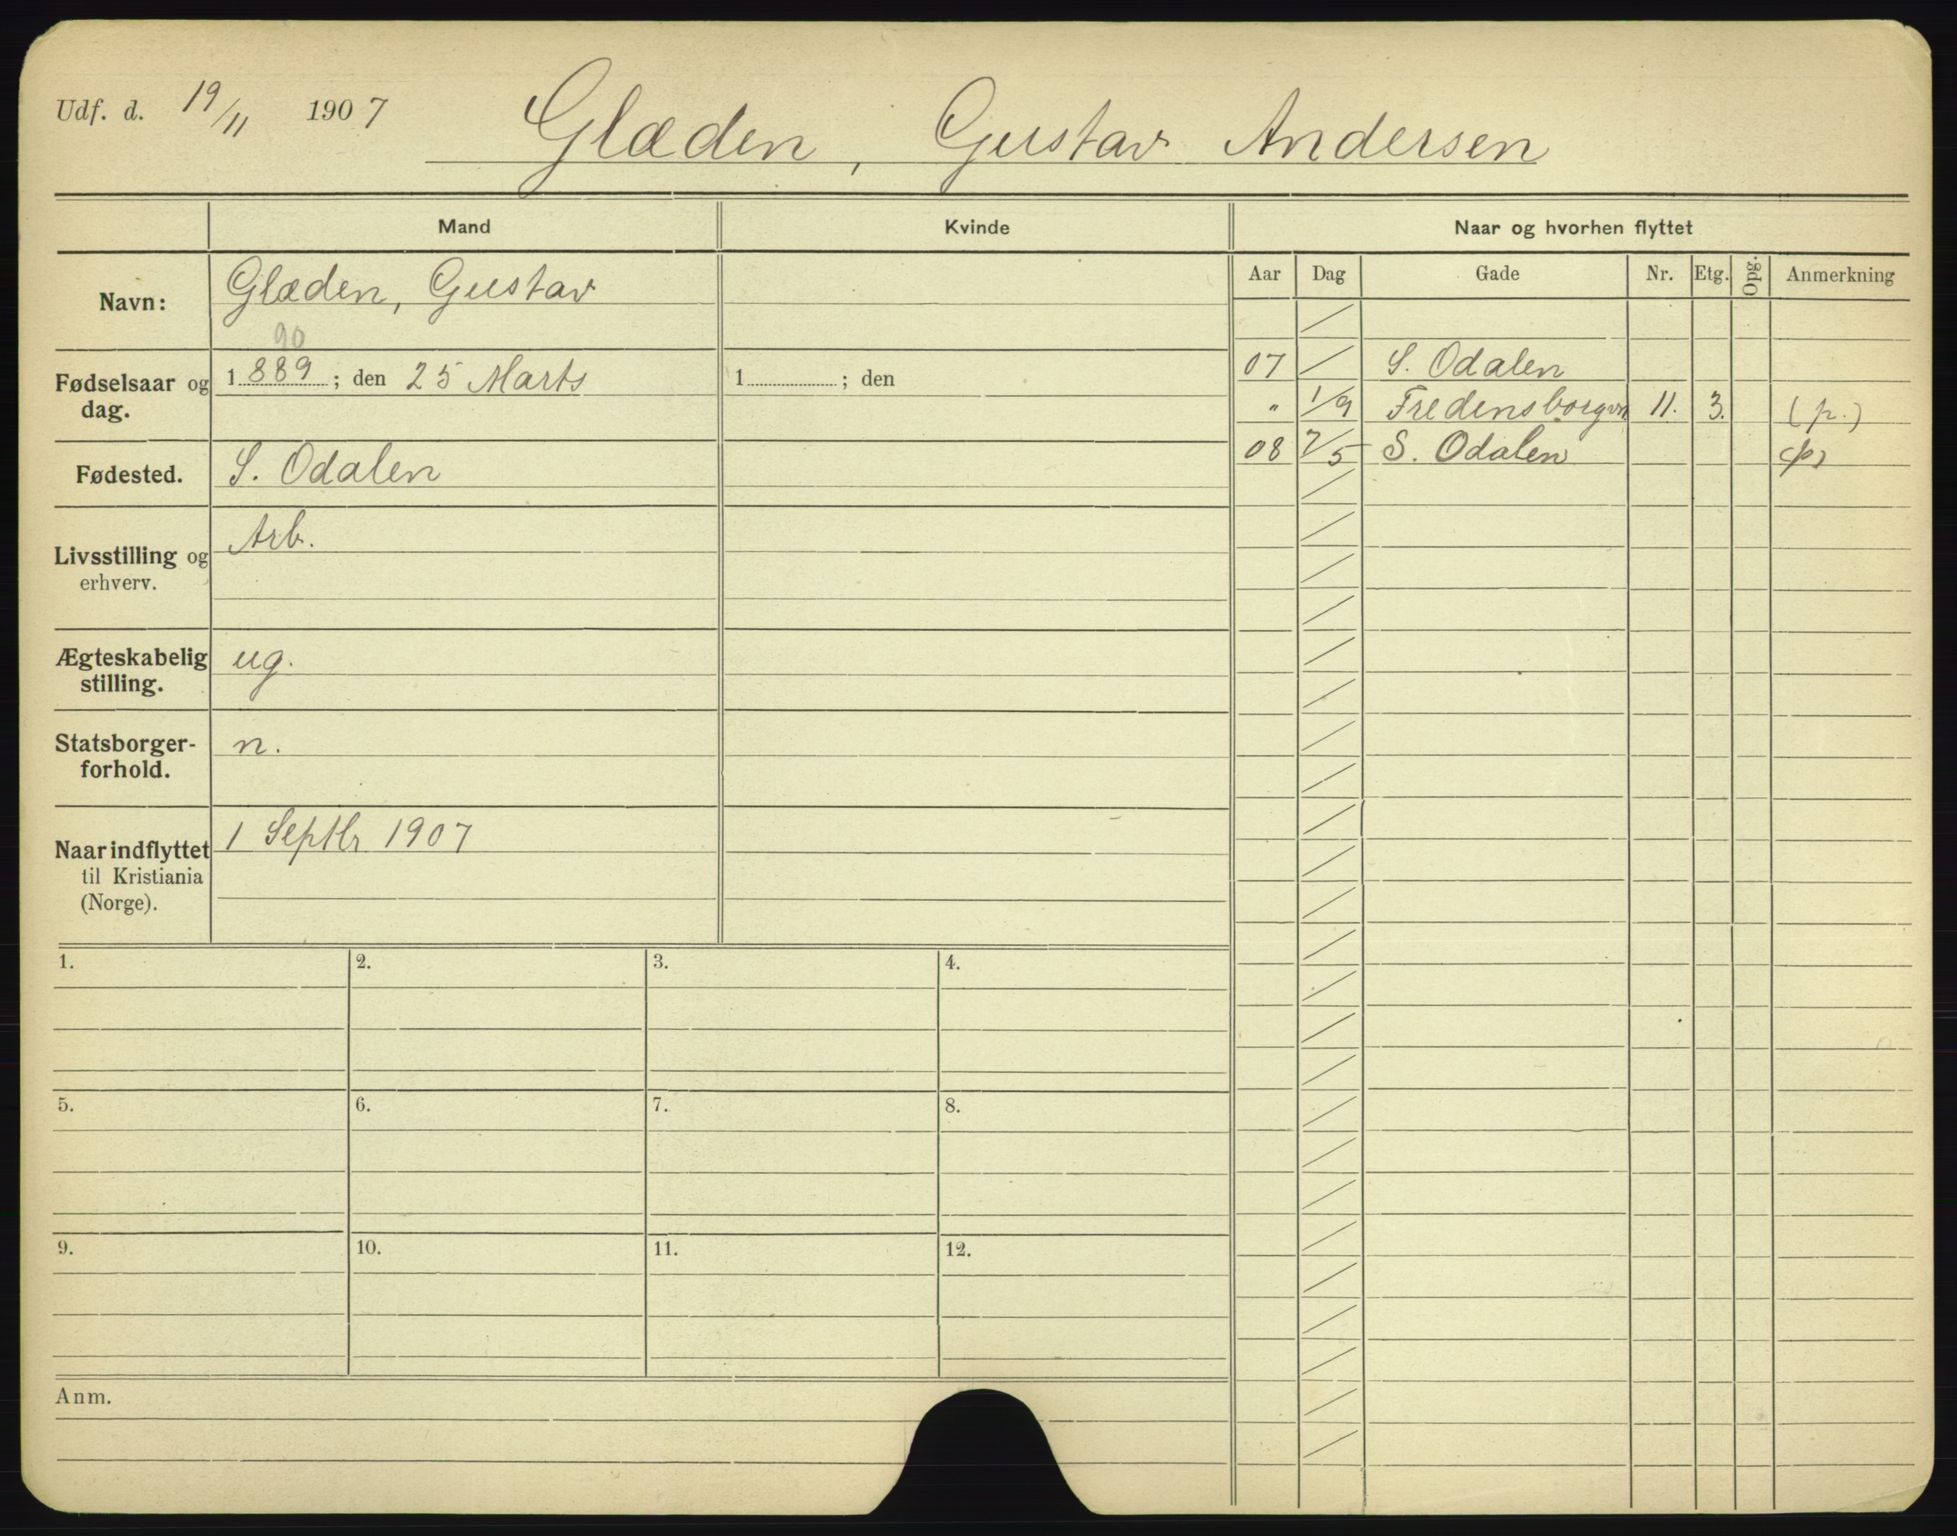 Udf. d. 19/11 1907 Glæden, Gustav Andersen
Mand Kvinde Naar og hvorhen flyttet
Aar Dag Gade Nr. Etg. Opg. Anmerkning
Navn: Glæden, Gustav
90
Fødselsaar og dag. 1889; den 25 Marts 1 ; den
Fødested. S. Odalen
Livsstilling og erhverv. Arb.
Ægteskabelig stilling. ug.
Statsborger-forhold. n.
Naar indflyttet til Kristiania (Norge). 1 Septbr 1907
07 / S. Odalen
" 1/9 Fredensborgvn 11. 3. (p.)
08 7/5 S. Odalen (p)
1. 2. 3. 4.
5. 6. 7. 8.
9. 10. 11. 12.
Anm.